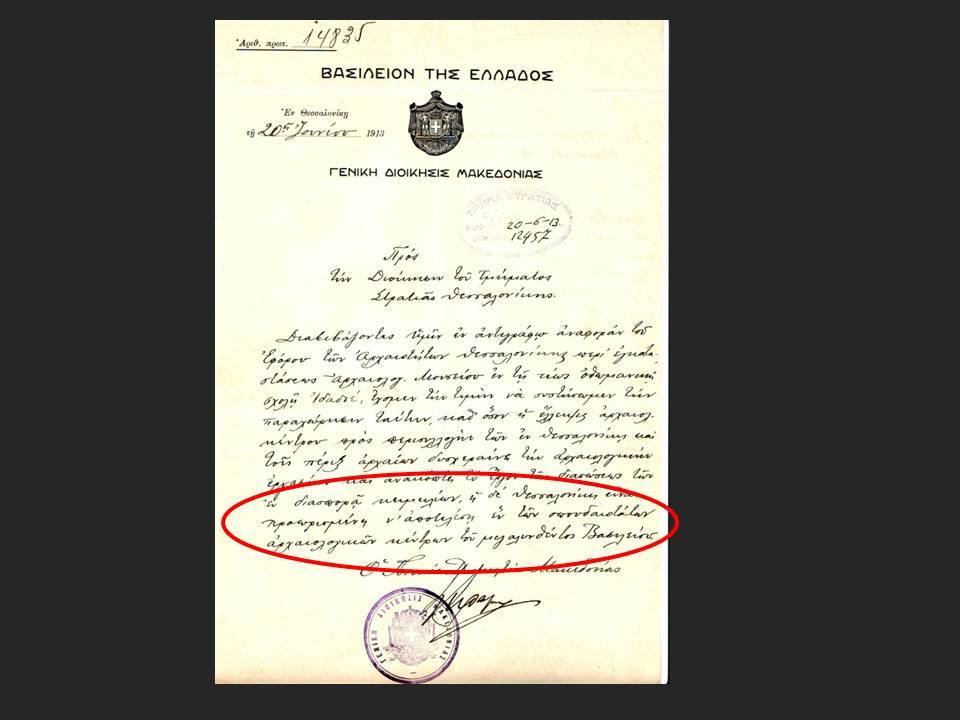 Ἀριθ. πρωτ. 14835
ΒΑΣΙΛΕΙΟΝ ΤΗΣ ΕΛΛΑΔΟΣ
Ἐν Θεσσαλονίκῃ
τῇ 20ῃ Ἰουνίου 1913
ΓΕΝΙΚΗ ΔΙΟΙΚΗΣΙΣ ΜΑΚΕΔΟΝΙΑΣ
ΤΜΗΜΑ ΣΤΡΑΤΙΑΣ
20-6-13
12457
Πρὸς
τὴν Διοίκησιν τοῦ Τμήματος
Στρατιᾶς Θεσσαλονίκης.
Διαβιβάζοντες ὑμῖν ἐν ἀντιγράφῳ ἀναφορὰν τοῦ
Ἐφόρου τῶν Ἀρχαιοτήτων Θεσσαλονίκης περὶ ἐγκατα-
στάσεως Ἀρχαιολογ. Μουσείου ἐν τῇ τέως ὀθωμανικῇ
σχολῇ Ἰδαδιέ, ἔχομεν τὴν τιμὴν νὰ συστήσωμεν τὴν
παραχώρησιν ταύτην, καθ' ὅσον ἡ ἔλλειψις ἀρχαιολ.
κέντρου πρὸς περισυλλογὴν τῶν ἐν Θεσσαλονίκῃ καὶ
τοῖς πέριξ ἀρχαίων δυσχεραίνει τὴν ἀρχαιολογικὴν
ἐργασίαν καὶ ἀνακόπτει τὸ ἔργον τῆς διασώσεως τῶν
ἐν διασπορᾷ κειμηλίων, ἡ δὲ Θεσσαλονίκη εἶναι
προωρισμένη ν' ἀποτελέσῃ ἓν τῶν σπουδαιοτάτων
ἀρχαιολογικῶν κέντρων τοῦ μεγαλυνθέντος Βασιλείου
Ὁ Γενικὸς Διοικητὴς Μακεδονίας
ΓΕΝΙΚΗ ΔΙΟΙΚΗΣΙΣ ΜΑΚΕΔΟΝΙΑΣ